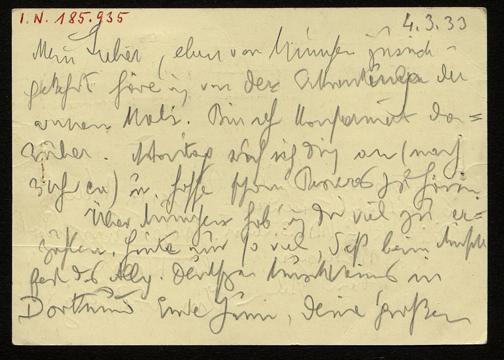 I.N. 185.935
4.3.33
Mein Lieber, eben von München zurück-
gekehrt höre ich von der Erkrankung der
armen Mali. Bin sehr konsterniert da=
rüber. Montag ruf ich Dich an (nach
Zürich) u. hoffe schon Besseres zu hören.
Über München hab ich Dir viel zu er-
zählen, heute nur so viel, daß beim
des Allg. Deutschen Musikvereins in
Dortmund Deine großen